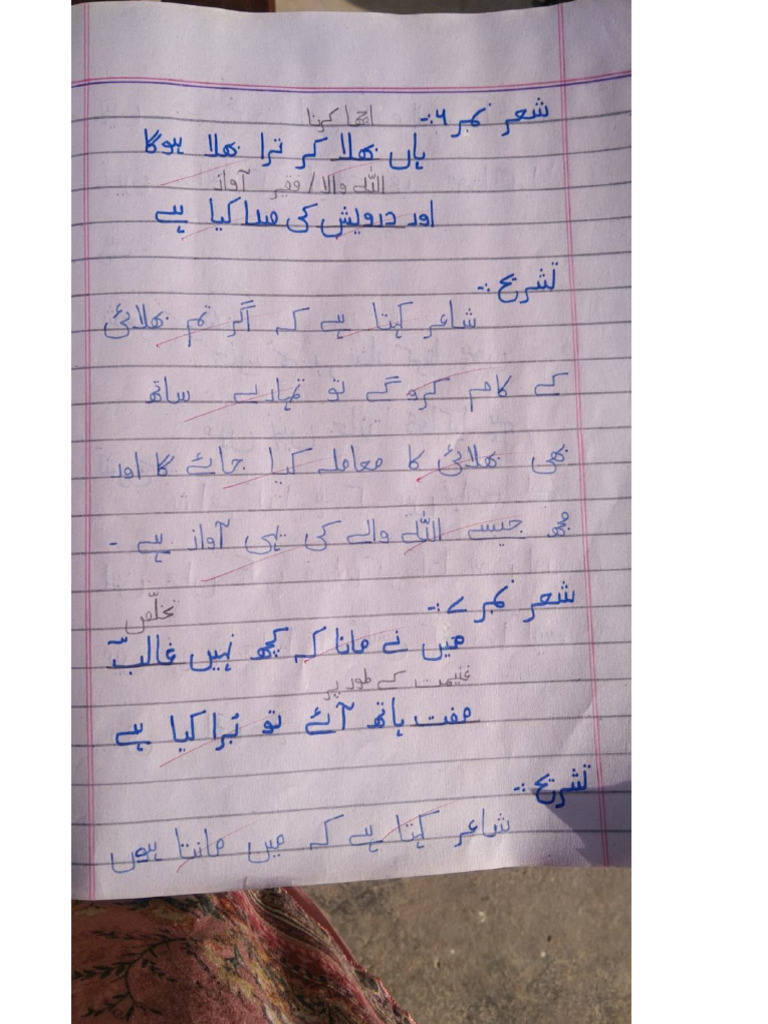 شعر نمبر ۶:-
اچھا کرنا
ہاں بھلا کر ترا بھلا ہوگا
اللہ والا / فقیر آواز
اور درویش کی صدا کیا ہے
تشریح:-
شاعر کہتا ہے کہ اگر تم بھلائی
کے کام کروگے تو تمہارے ساتھ
بھی بھلائی کا معاملہ کیا جائے گا اور
مجھ جیسے اللہ والے کی یہی آواز ہے -
شعر نمبر ۷:-
تخلّص
میں نے مانا کہ کچھ نہیں غالبؔ
غنیمت کے طور پر
مفت ہاتھ آئے تو بُرا کیا ہے
تشریح:-
شاعر کہتا ہے کہ میں مانتا ہوں